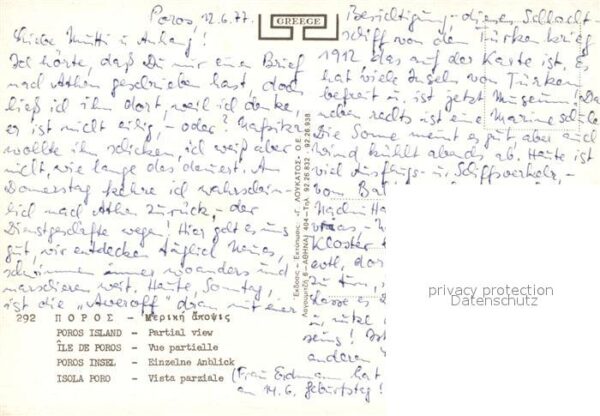 Poros, 12.6.77.
GREECE
Liebe Mutti u. Anhang!
Ich hörte, daß Du mir einen Brief
nach Athen geschrieben hast, doch
ließ ich ihn dort, weil ich denke
er ist nicht eilig, – oder?
wollte ihn schicken, ich weiß aber
nicht, wie lange das dauert. Am
Donnerstag fahre ich wahrschein-
lich nach Athen zurück, der
Dienstgeschäfte wegen! Hier geht es uns
gut, wir entdecken täglich Neues,
schwimmen immer woanders und
marschieren weit. Heute, Sonntag,
ist die „Averoff" dran mit einer
Besichtigung, dieses Schlacht-
schiff von dem Türkenkrieg
1912, das auf der Karte ist. Es
hat viele Inseln von Türken
befreit u. ist jetzt Museum! Da
neben rechts ist eine Marineschule
Die Sonne meint es gut aber auch
Wind kühlt abends ab. Heute ist
viel Ausflugs- u. Schiffsverkehr, –
von
Kloster
evtl. dor
zu
anderen
(Frau Erdmann hat
am 14.6. Geburtstag!
Έκδοσις – Εκτύπωσις: ΛΟΥΚΑΤΟΣ Ο.Ε.
6 – ΑΘΗΝΑΙ 404 – Τηλ. 92.26.832 92.26.938
292 ΠΟΡΟΣ – Μερική άποψις
POROS ISLAND – Partial view
ÎLE DE POROS – Vue partielle
POROS INSEL – Einzelne Anblick
ISOLA PORO – Vista parziale
privacy protection
Datenschutz